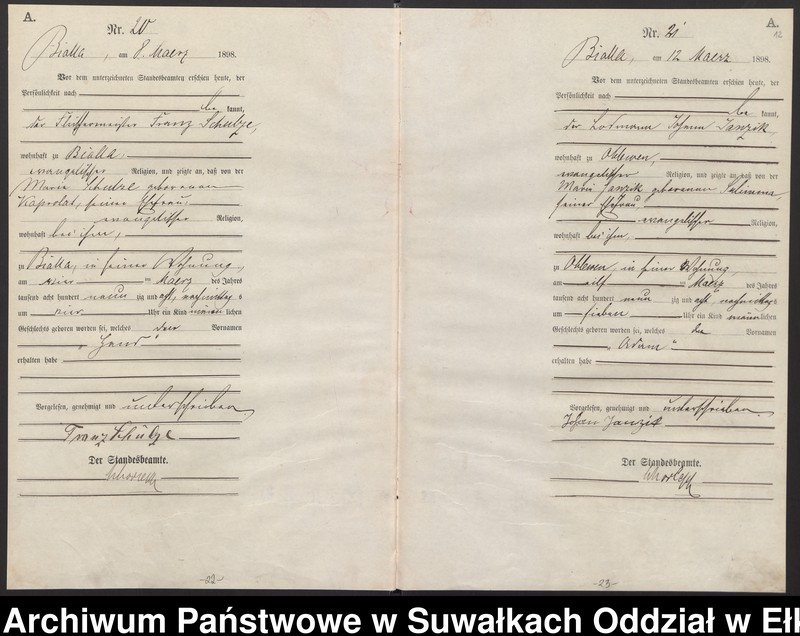 A.
Nr. 20
Bialla, am 8. Maerz 1898.
Vor dem unterzeichneten Standesbeamten erschien heute, der
Persönlichkeit nach
be kannt,
der Franz Schulze,
wohnhaft zu Bialla
evangelischer Religion, und zeigte an, daß von der
Marie Schulze geborenen
Kaprolat, seiner Ehefrau
evangelischer Religion,
wohnhaft bei ihm,
zu Bialla, in seiner Wohnung,
am vier ten Maerz des Jahres
tausend acht hundert neun zig und acht, nachmittags
um vier Uhr ein Kind männlichen
Geschlechts geboren worden sei, welches den Vornamen
erhalten habe
Vorgelesen, genehmigt und unterschrieben
Franz Schulze
Der Standesbeamte.
-22-
A.
12
Nr. 21
Bialla, am 12 Maerz 1898.
Vor dem unterzeichneten Standesbeamten erschien heute, der
Persönlichkeit nach
be kannt,
der Losmann Johann Janzik,
wohnhaft zu Oblewen,
evangelischer Religion, und zeigte an, daß von der
Marie Janzik geborenen
seiner Ehefrau,
evangelischer Religion,
wohnhaft bei ihm,
zu Oblewen, in seiner Wohnung,
am elf ten Maerz des Jahres
tausend acht hundert neun zig und acht nachmittags
um sieben Uhr ein Kind männlichen
Geschlechts geboren worden sei, welches den Vornamen
"Adam"
erhalten habe
Vorgelesen, genehmigt und unterschrieben.
Johann Janzik
Der Standesbeamte.
-23-
Archiwum Państwowe w Suwałkach Oddział w Ełk